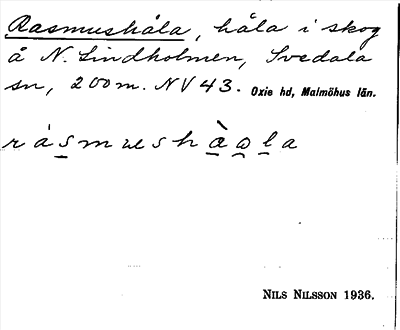 Rasmushåla, håla i skog
å N. Lindholmen, Svedala
sn, 200m. NV 43. Oxie hd, Malmöhus län.
rásmushàola
NILS NILSSON 1936.